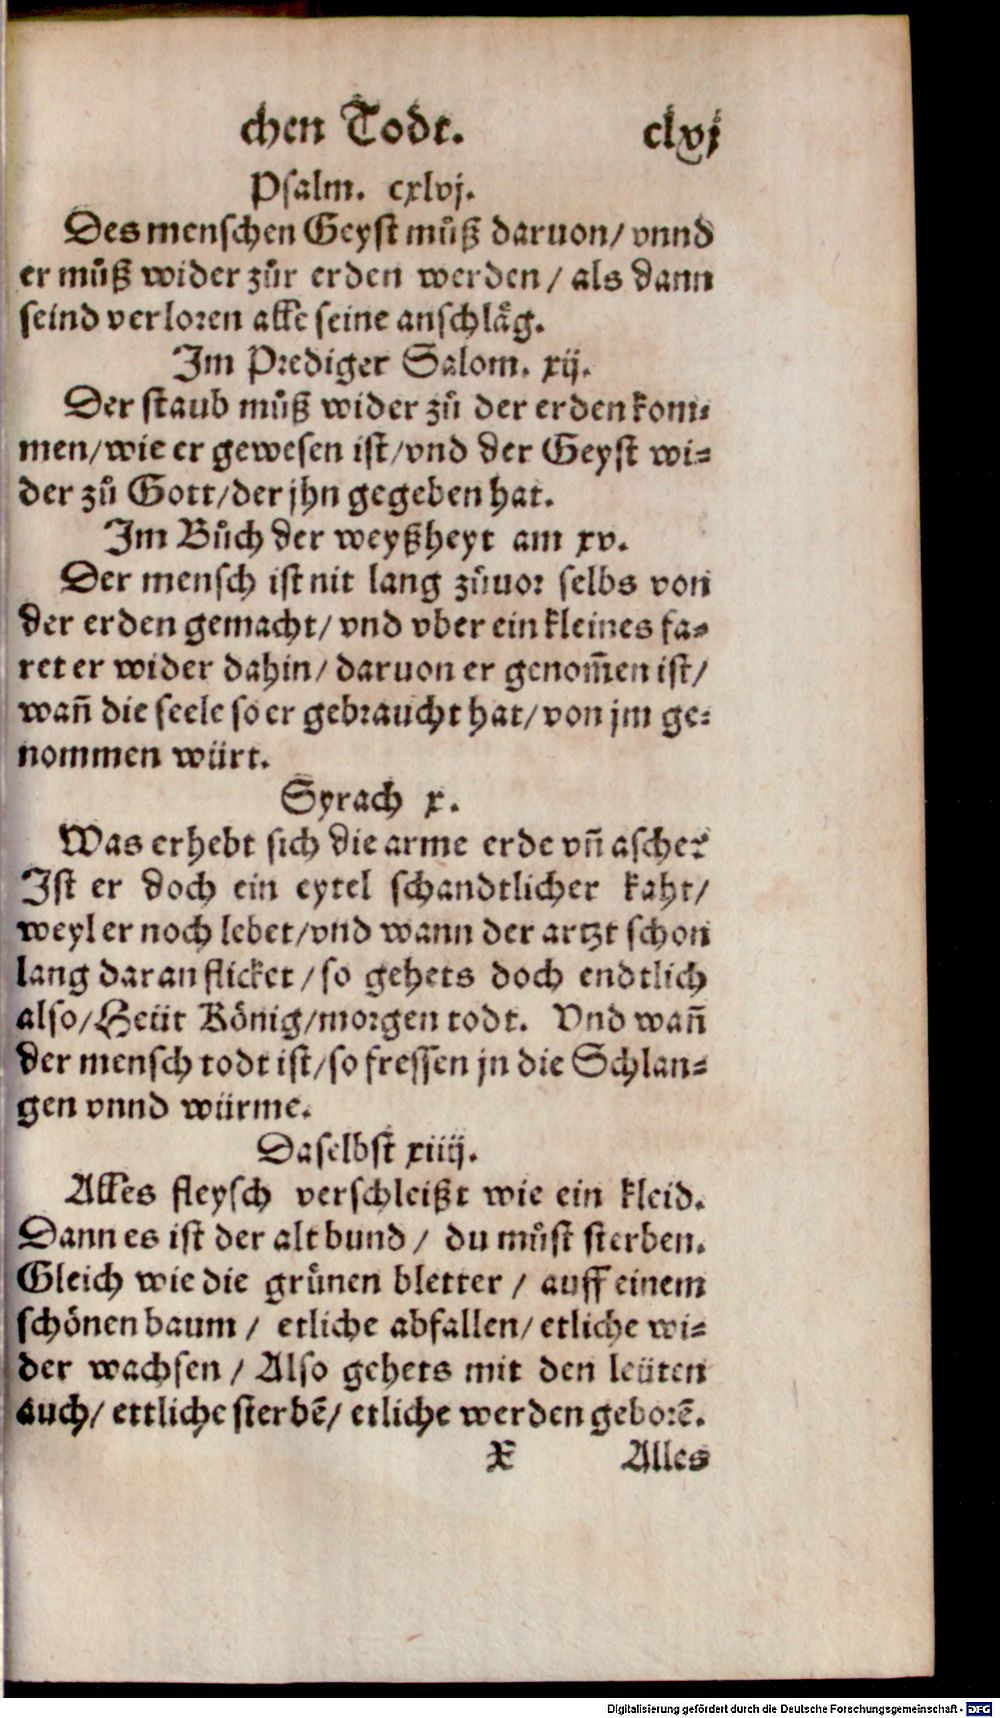 chen Todt. clvj
Psalm. cxlvj.
Des menschen Geyst můß daruon/ vnnd
er můß wider zůr erden werden / als dann
seind verloren alle seine anschläg.
Im Prediger Salom. xij.
Der staub můß wider zů der erden kom-
men/wie er gewesen ist/vnd der Geyst wi-
der zů Gott/der jhn gegeben hat.
Im Bůch der weyßheyt am xv.
Der mensch ist nit lang zůuor selbs von
der erden gemacht/ vnd vber ein kleines fa-
ret er wider dahin/ daruon er genom̃en ist/
wañ die seele so er gebraucht hat/von jm ge-
nommen würt.
Syrach x.
Was erhebt sich die arme erde vñ asche?
Ist er doch ein eytel schandtlicher kaht/
weyl er noch lebet/vnd wann der artzt schon
lang daran flicket /so gehets doch endtlich
also/Heüt König/morgen todt. Vnd wañ
der mensch todt ist/so fressen jn die Schlan-
gen vnnd würme.
Daselbst xiiij.
Alles fleysch verschleißt wie ein kleid.
Dann es ist der alt bund / du můst sterben.
Gleich wie die grůnen bletter / auff einem
schönen baum / etliche abfallen/ etliche wi-
der wachsen / Also gehets mit den leüten
auch/ ettliche sterbẽ/ etliche werden geborẽ.
X Alles
Digitalisierung gefördert durch die Deutsche Forschungsgemeinschaft - DFG